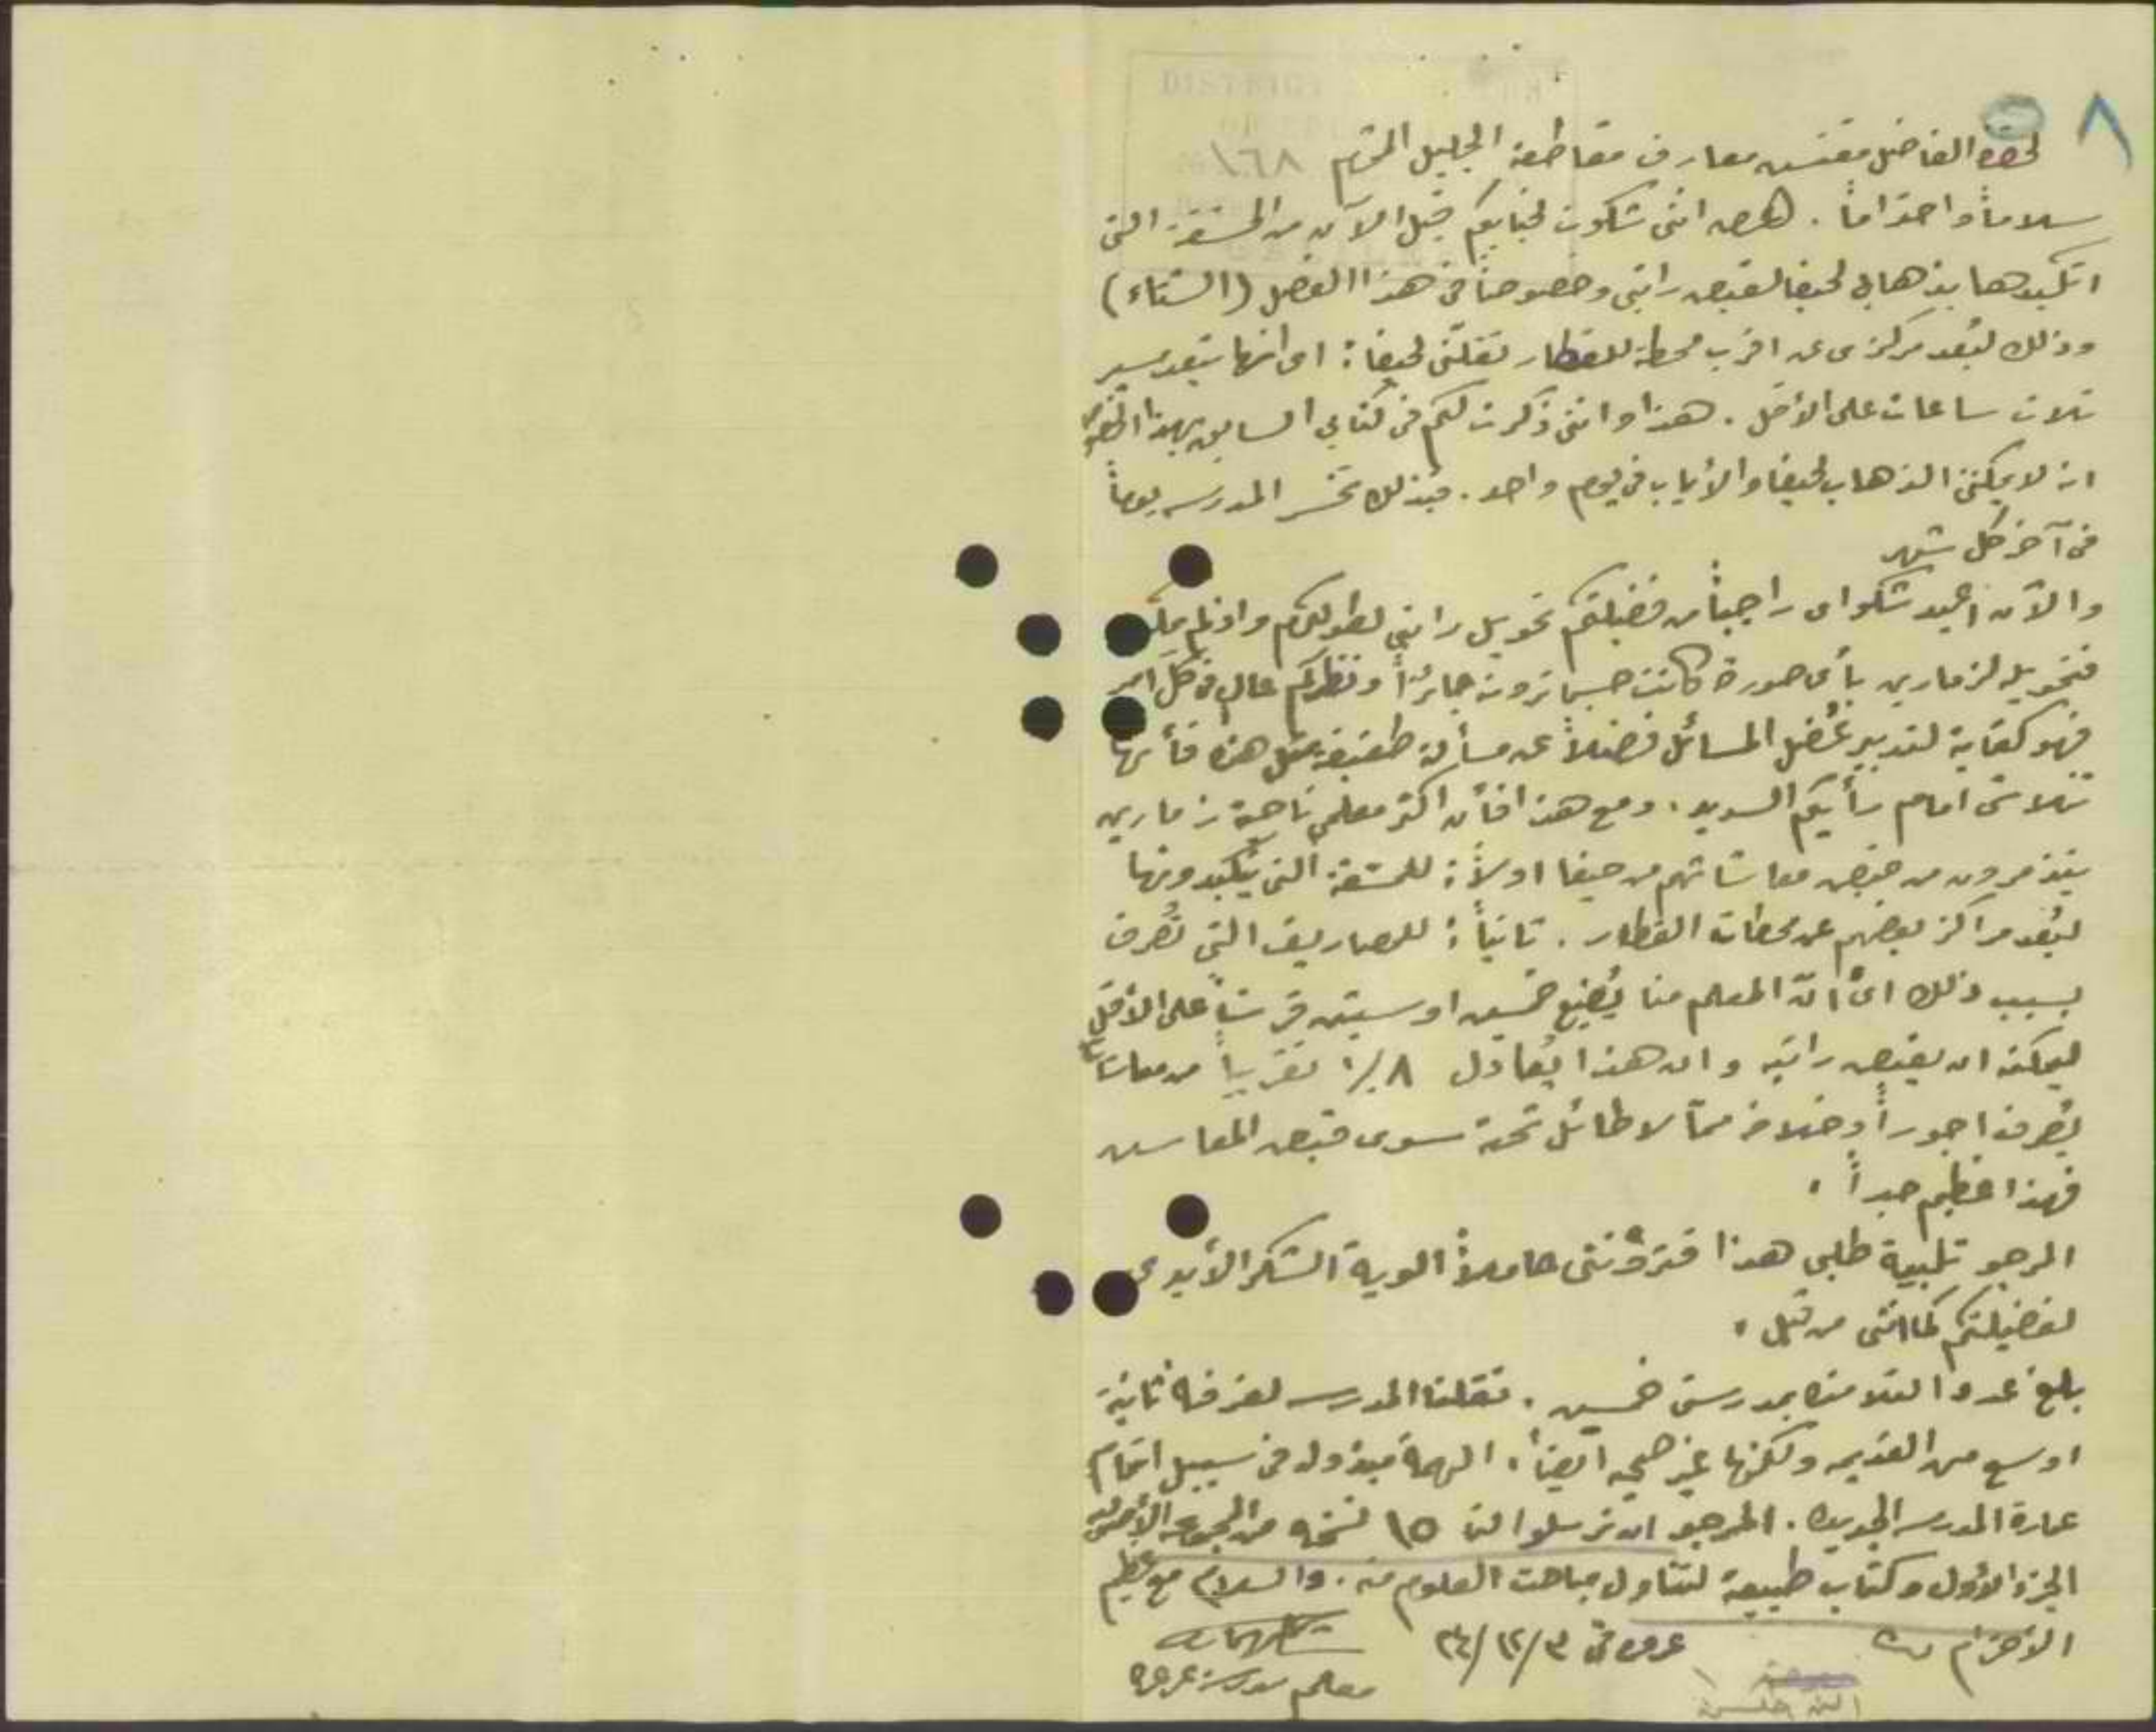 ٨
لحضرة الفاضل مفتش معارف مقاطعة الجليل المحترم
١٦٨
سلاماً واحتراماً. انني شكوت لجنابكم قبل الآن من المشقة التي
اتكبدها بذهابي لحيفا لقبض راتبي وخصوصاً في هذا الفصل (الشتاء)
وذلك لبُعد مركزي عن اقرب محطة للقطار تقلّني لحيفا: اي انها تبعد مسير
ثلاث ساعات على الأقل. هذا وانني ذكرت لكم في كتابي السابق بهذا الخصوص
انه لا يمكنني الذهاب لحيفا والأياب في يوم واحد. فبذلك تخسر المدرسه يوماً
في آخر كل شهر
والآن اعيد شكواي راجياً من فضيلتكم تحويل راتبي لطولكرم
فتحويله لزمارين بأي صورة كانت حسبما ترونه جائزاً ونظركم عالٍ في كل امر
فهو كفاية لتدبير عُضل المسائل فضلاً عن مسألة طفيفة مثل هذه فأنها
تتلاشى امام رأيكم السديد. ومع هذا فأن اكثر معلمي ناحية زمارين
يتذمرون من قبض معاشاتهم من حيفا اولاً: للمشقة التي يتكبدونها
لبُعد مراكز بعضهم عن محطات القطار. ثانياً: للمصاريف التي تُصرف
بسبب ذلك اي انّ المعلم منا يُضيع خمسين او ستين قرشاً على الأقل
ليمكنه ان يقبض راتبه وان هذا يُعادل ٨٪ تقريباً من معاشاتنا
يُصرف اجوراً وخلافه ممّا لا طائل تحته سوى قبض المعاش
فهذا عظيم جداً.
المرجو تلبية طلبي هذا فترونني حاملاً الوية الشكر الأبدي
لفضيلتكم كما انني من قبل.
بلغ عدد التلامذه بمدرستي خمسين. نقلنا المدرسه لغرفه ثانية
اوسع من القديمه ولكنها غير صحيه ايضاً. الهمة مبذوله في سبيل اتمام
عمارة المدرسه الجديده. المرجو ان ترسلوا لنا ١٥ نسخه من المجموعه
الجزء الأول وكتاب طبيعة لتناول مباحث العلوم منه. والسلام مع عظيم
الأحترام
عرعره في ٣/١٢/٣٤
معلم مدرسة عرعره